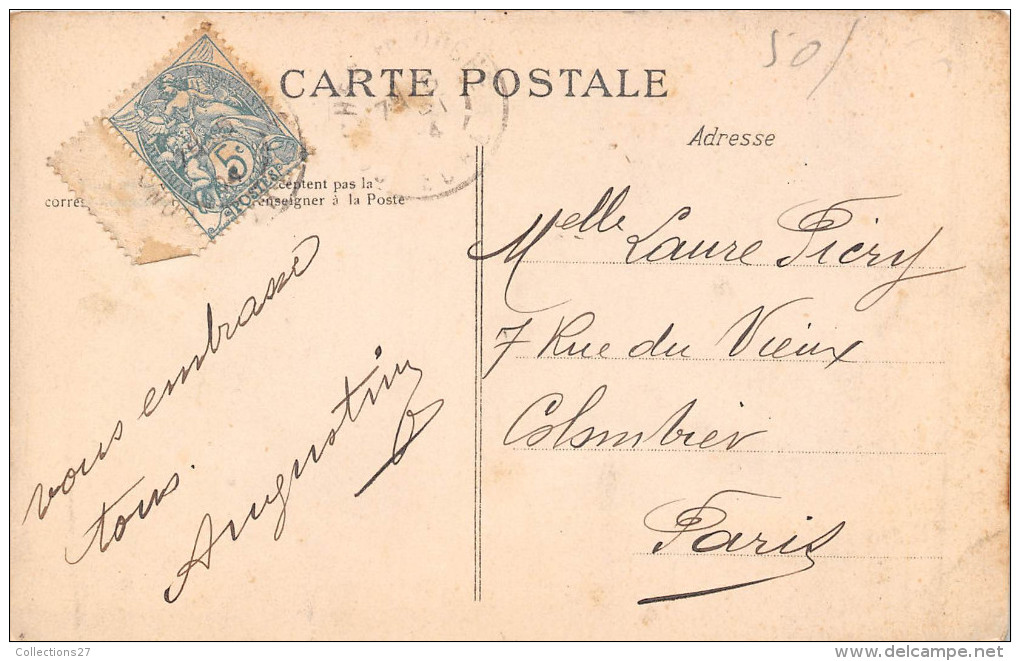 50/
CARTE POSTALE
Adresse
5c
POSTES
ceptent pas la
corres enseigner à la Poste
Melle Laure Picry
7 Rue du Vieux
Colombier
Paris
vous embrasse
tous.
Augustin
Collections27
delcampe.net